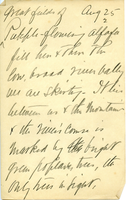 Great fields of Aug 25
Purple-flowering alfalfa
fill her & then the
low, broad river valley
we are skirting. It lies
between us & the mountains
& the river's course is
marked by the bright
green poplars, here, the
only trees in sight.